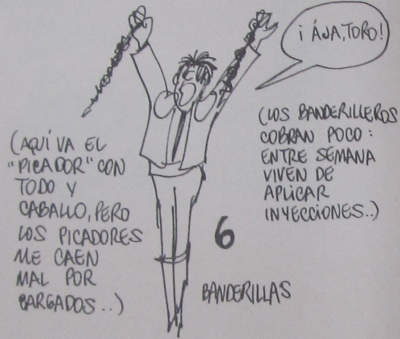 ¡ÁJA, TORO!
(AQUÍ VA EL
"PICADOR" CON
TODO Y
CABALLO, PERO
LOS PICADORES
ME CAEN
MAL POR
CARGADOS...)
(LOS BANDERILLEROS
COBRAN POCO:
ENTRE SEMANA
VIVEN DE
APLICAR
INYECCIONES..)
6
BANDERILLAS